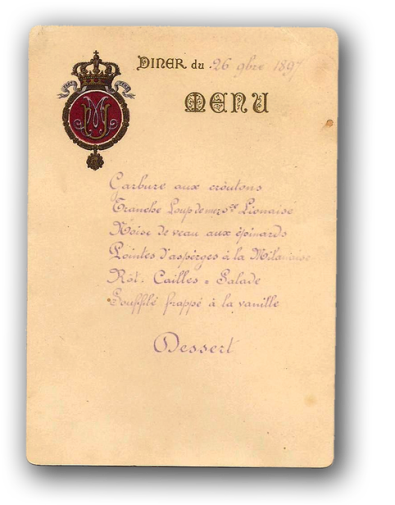 DINER du 26 9bre 1897
MENU
Carbure aux croûtons
Tranche Loup de mer sce Lionaise
Noise de veau aux épinards
Pointes d'asperges à la Milanaise
Rôt. Cailles & Salade
Soufflé frappé à la vanille
Dessert